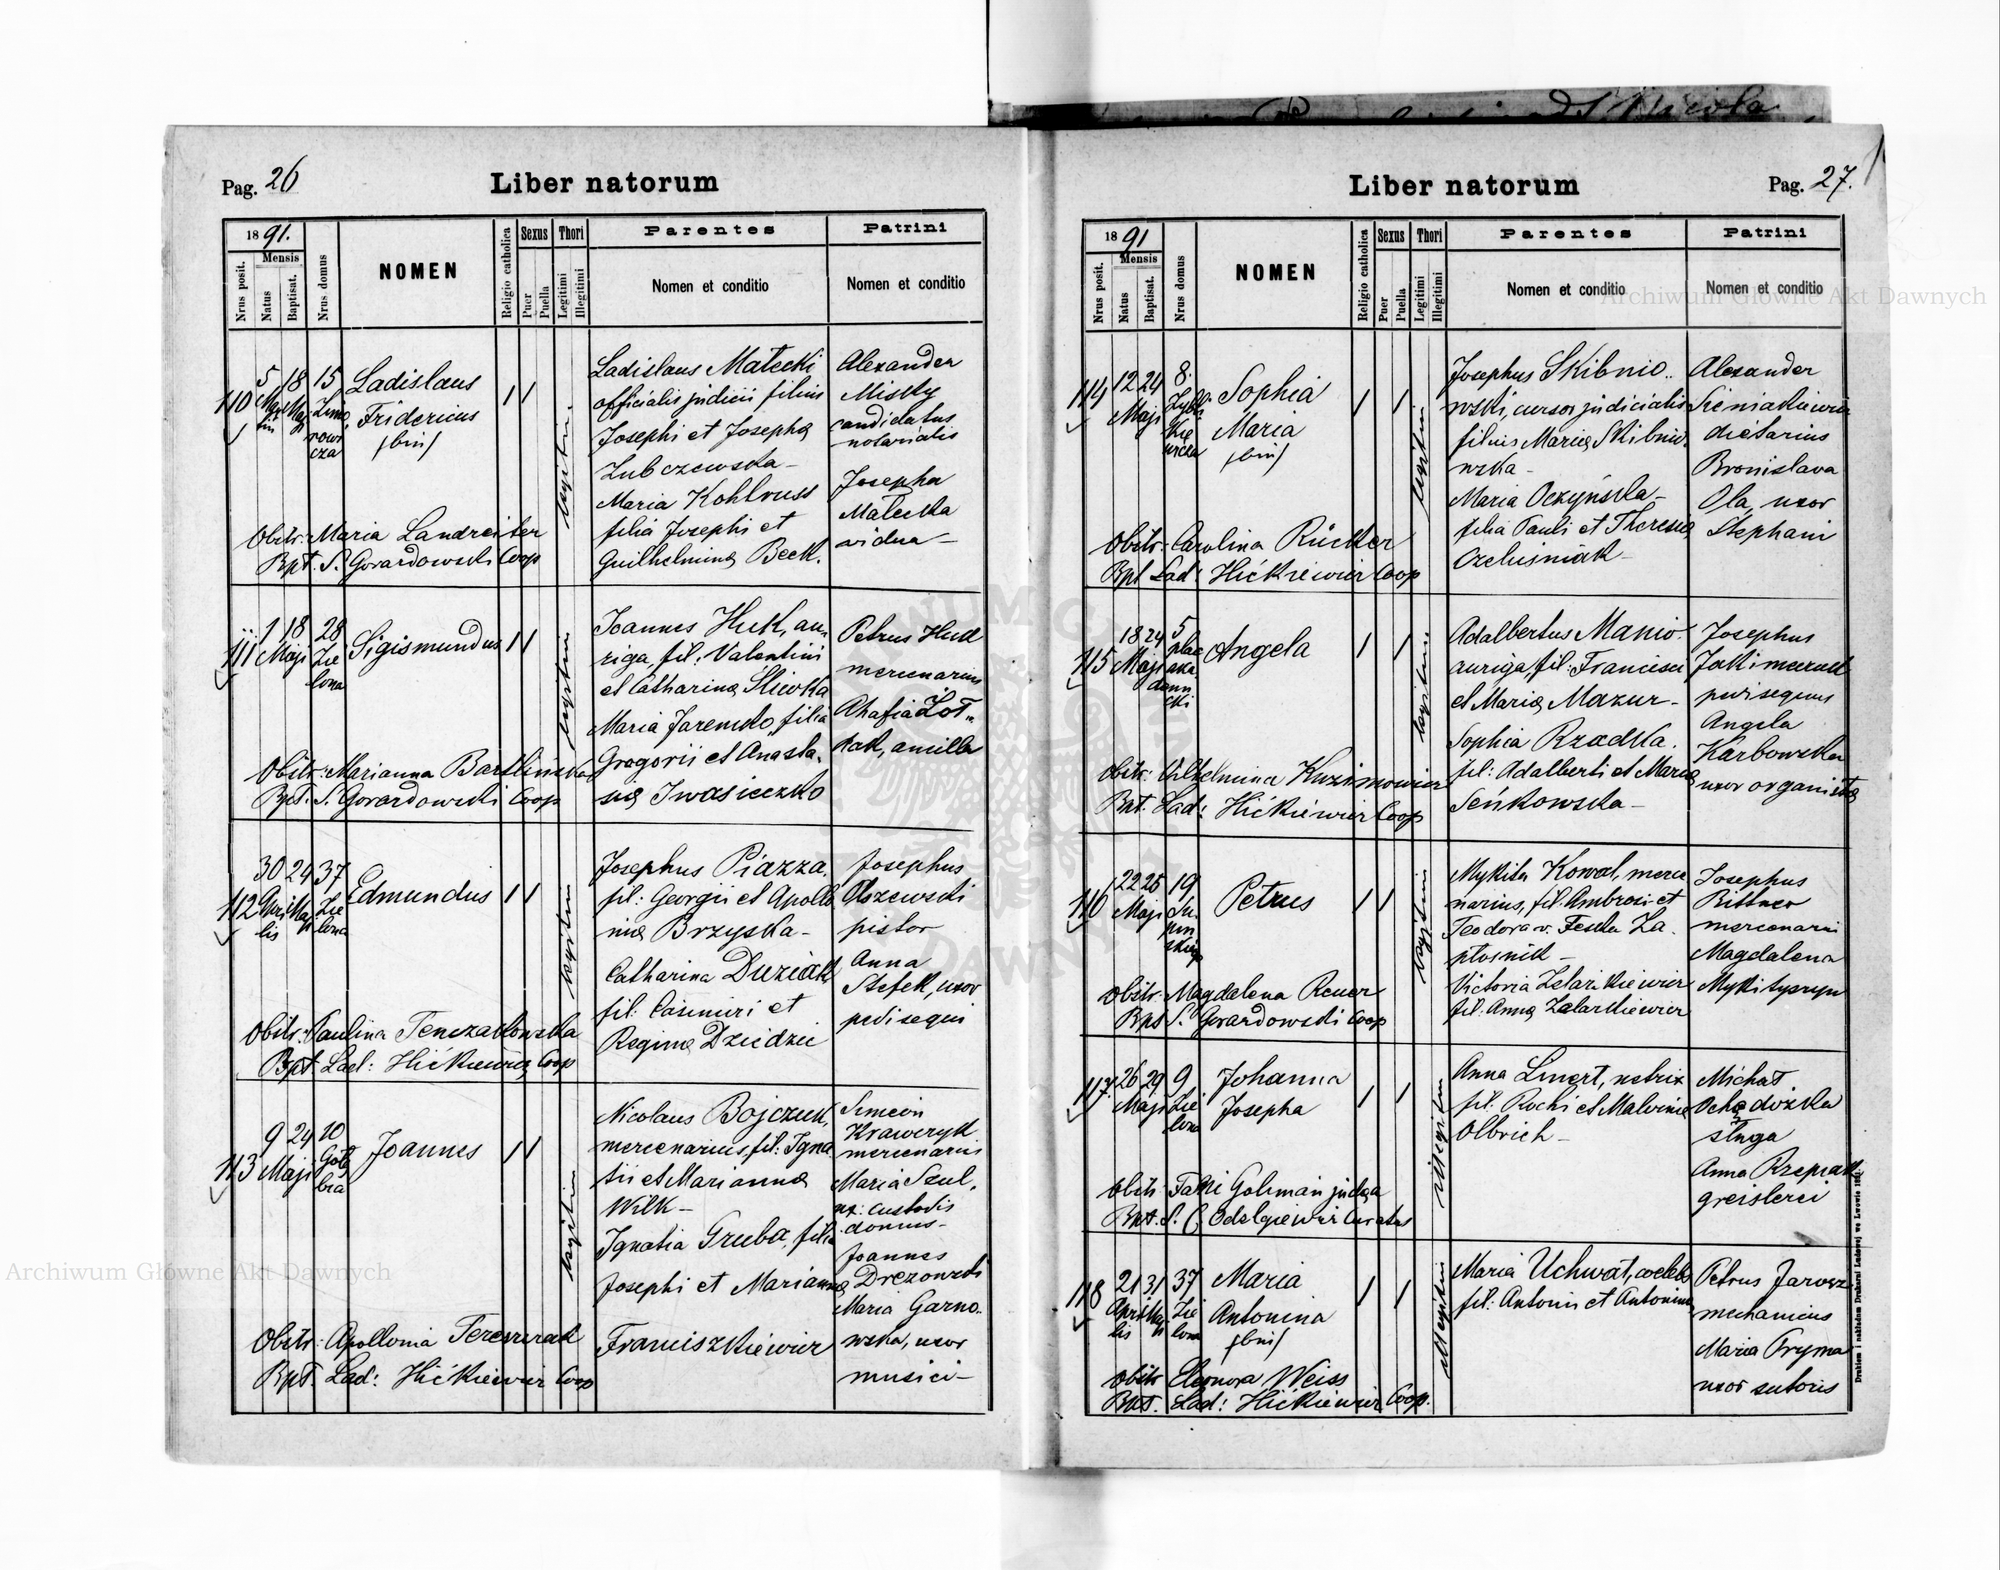 Pag. 26
Liber natorum
1891.
Mensis
Nrus posit.
Natus
Baptisat.
Nrus domus
NOMEN
Religio catholica
Sexus
Puer
Puella
Thori
Legitimi
Illegitimi
Parentes
Nomen et conditio
Patrini
Nomen et conditio
110
5
18
Maji
15
Ladislaus
Fridericus
(bin)
legitimi
Ladislaus Małecki
officialis judicii filius
Josephi et Josepha
Zubczewska -
Maria Kohlruss
filia Josephi et
Guilhelmina Beck.
Alexander
Misky
candidatus
notarialis
Josepha
Małecka
vidua -
Obstr: Maria Landreiter
Bpt. S. Gorardowski Coop
111
1 18
Maji
28
Zie
lona
Sigismundus
legitimi
Joannes Huk, au
riga, fil: Valentini
et Catharina Sliwka
Maria Jaremko, filia
Gregorii et Anasta.
sia Iwasieczko
Petrus Huk
mercenarius
Ahafia Żoł„
dak, ancilla
Obstr: Marianna Bartlińska
Bpt. S. Gorardowski Coop
112
30 24
Apri
lis
Maji
37
Zie
lona
Edmundus
legitimi
Josephus Piazza,
fil: Georgii et Apollo
nia Brzyska -
Catharina Duziak
fil: Casimiri et
Regina Dziedzic
Josephus
Olszewski
pistor
Anna
Stefek, uxor
pedisequi
Obstr: Paulina Tenczakowska
Bpt. Lad: Hićkiewicz Coop
113
9 24
Maji
10
Gołę
bia
Joannes
legitimi
Nicolaus Bojczuk,
mercenarius, fil: Igna
tii et Marianna
Wilk -
Ignatia Gruba, filia
Josephi et Marianna
Franciszkiewicz
Simeon
Krawczyk
mercenarius
Maria Szul,
ux: custodis
domus -
Joannes
Drezowski
Maria Garno.
wska, uxor
musici -
Obstr: Apollonia
Bpt. Lad: Hićkiewicz Coop
Liber natorum
Pag. 27.
1891
Mensis
Nrus posit.
Natus
Baptisat.
Nrus domus
NOMEN
Religio catholica
Sexus
Puer
Puella
Thori
Legitimi
Illegitimi
Parentes
Nomen et conditio
Patrini
Nomen et conditio
114
12 24
Maji
8.
Sophia
Maria
(bin)
legitimi
Josephus Skibnio..
wski, cursor judicialis
filius Maria Skibnio.
wska -
Maria Oczyńska -
filia Pauli et Theresia
Ozeluśniak -
Alexander
Sieniakiewicz
dietarius
Bronislava
Ola, uxor
Stephani
Obstr: Carolina Rücker
Bpt Lad: Hićkiewicz Coop
115
18 24
Maji
5
Angela
legitimi
Adalbertus Manio.
auriga, fil: Francisci
et Maria Mazur -
Sophia Rzadka.
fil: Adalberti et Maria
Seńkowska -
Josephus
pedisequus
Angela
Karbowska
uxor organistae
Obstr: Vilhelmina Kuzimowicz
Bpt. Lad: Hićkiewicz Coop
116
22 25
Maji
19
Su
pin
skiego
Petrus
legitimi
Mykita Kowal, merce
narius, fil. Ambrosi et
Teodora v. Feska Za.
płosnik -
Victoria Zelazkiewicz
fil: Anna Zelazkiewicz
Josephus
Bittner
mercenarii
Magdalena
Obstr: Magdalena Reuer
Bpt S. Gorardowski Coop
117.
26 29
Maji
9
Zie
lona
Johanna
Josepha
illegitimi
Anna Linert, netrix
fil: Rochi et Malvina
Olbrich -
Michał
sługa
Anna Rzepiak
greislerei
Obstr: Taki Golzman judæa
Bpt. S. C. Odelgiewicz Curatus
118
21 31
Apri
lis
Maji
37
Zie
lona
Maria
Antonina
(bin)
illegitimi
Maria Uchwat, coelebs
fil: Antonii et Antonina
Petrus Jarosz
mechanicus
Maria Pryma
uxor sutoris
Obstr Eleonora Weiss
Bpt. Lad: Hićkiewicz Coop.
Archiwum Główne Akt Dawnych
Archiwum Główne Akt Dawnych